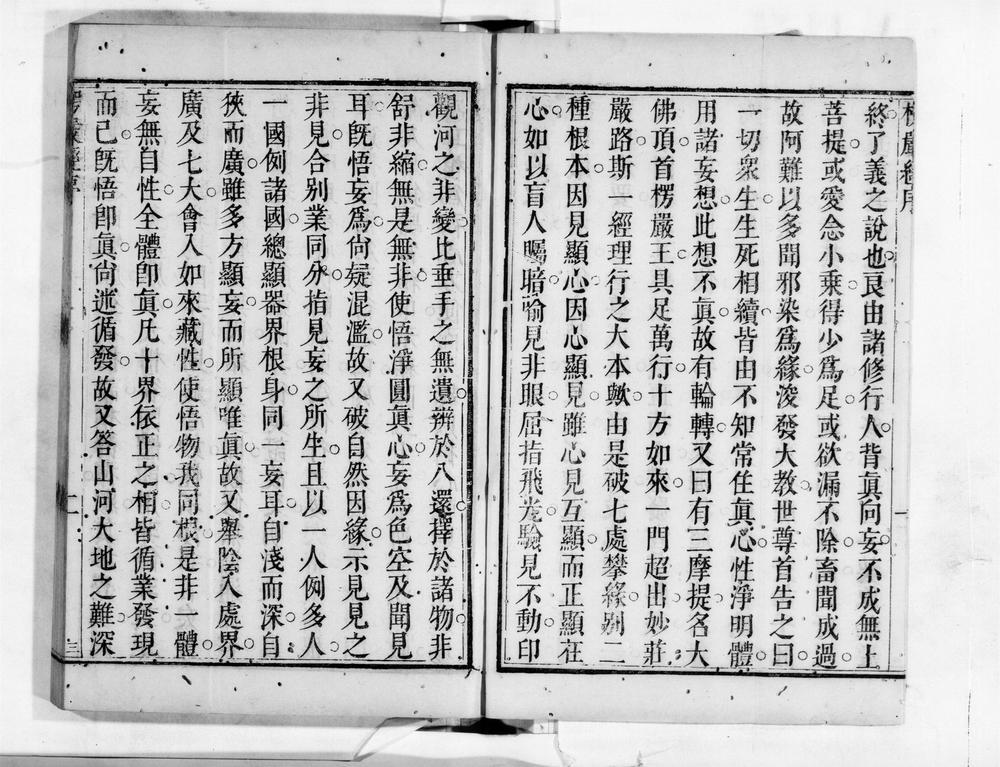 楞嚴經序
終了義之說也良由諸修行人背眞向妄不成無上
菩提或愛念小乘得少爲足或欲漏不除畜聞成過
故阿難以多聞邪染爲緣浚發大教世尊首告之曰
一切衆生生死相續皆由不知常住眞心性淨明體
用諸妄想此想不眞故有輪轉又曰有三摩提名大
佛頂首楞嚴王具足萬行十方如來一門超出妙莊
嚴路斯一經理行之大本歟由是破七處攀緣別二
種根本因見顯心因心顯見雖心見互顯而正顯在
心如以盲人矚暗喻見非眼屈指飛光驗見不動印
一
觀河之非變比垂手之無遺辨於八還擇於諸物非
舒非縮無是無非使悟淨圓眞心妄爲色空及聞見
耳旣悟妄爲尙疑混濫故又破自然因緣示見見之
非見合别業同分指見妄之所生且以一人例多人
一國例諸國總顯器界根身同一妄耳自淺而深自
狹而廣雖多方顯妄而所顯唯眞故又舉陰入處界
廣及七大會入如來藏性使悟物我同根是非一體
妄無自性全體卽眞凡十界依正之相皆循業發現
而已旣悟卽眞尙迷循發故又答山河大地之難深
三